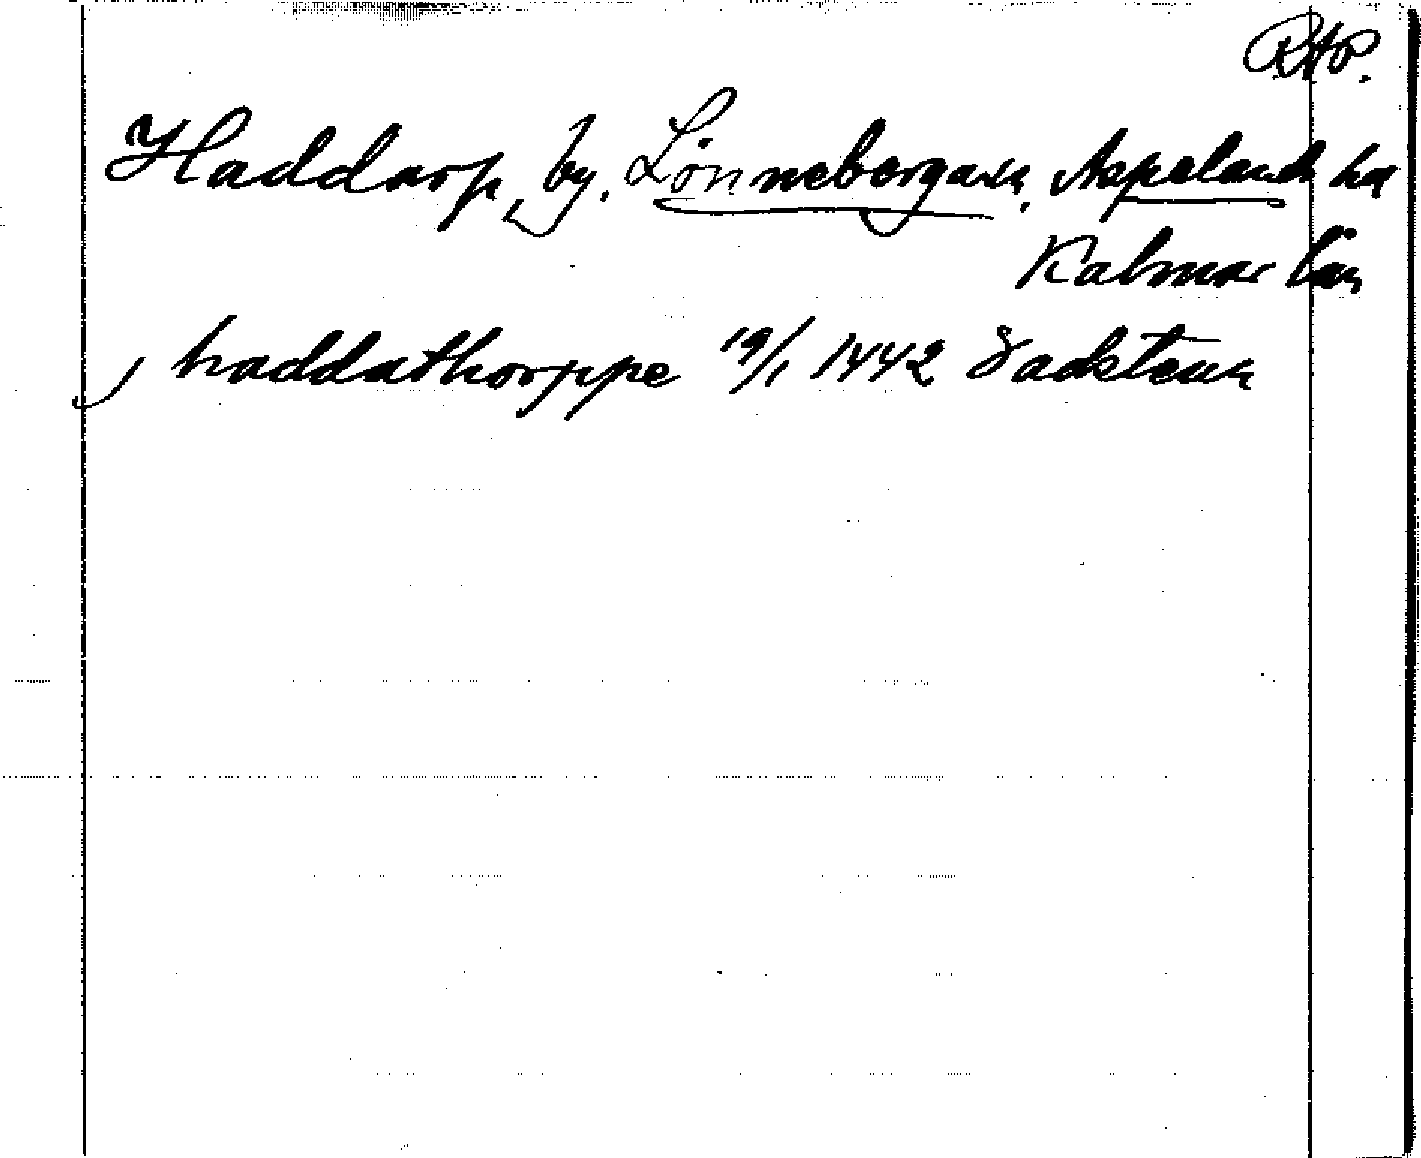 RAP.
Haddarp, by. Lönneberga sn. Aspelands hd
Kalmar län
, haddathorppe 19/1 1442 Vadstena